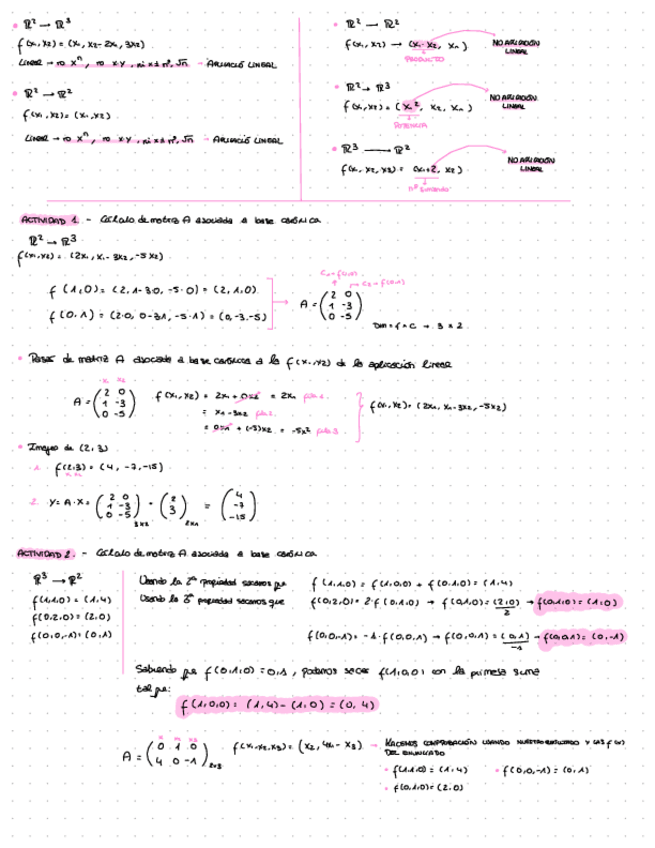 • ℝ² → ℝ³
f(x₁,x₂) = (x₁, x₂-2x₁, 3x₂)
LINEAL → no xⁿ, no x·y, ni x±nº, √n → APLICACIÓ LINEAL
• ℝ² → ℝ²
f(x₁,x₂) = (x₁,x₂)
LINEAL → no xⁿ, no x·y, ni x±nº, √n → APLICACIÓ LINEAL
• ℝ² → ℝ²
f(x₁,x₂) → (x₁·x₂, x₁)
PRODUCTO
NO APLICACIÓN LINEAL
• ℝ² → ℝ³
f(x₁,x₂) = (x₁², x₂, x₁)
POTENCIA
NO APLICACIÓN LINEAL
• ℝ³ → ℝ²
f(x₁, x₂, x₃) = (x₁+2, x₂)
nº sumando
NO APLICACIÓN LINEAL
ACTIVIDAD 1. - Cálculo de matriz A asociada a base canónica.
ℝ² → ℝ³
f(x₁,x₂) = (2x₁, x₁-3x₂, -5x₂)
f(1,0) = (2, 1-3·0, -5·0) = (2,1,0)
f(0,1) = (2·0, 0-3·1, -5·1) = (0,-3,-5)
C₁ = f(1,0)
C₂ = f(0,1)
A = (2 0
1 -3
0 -5)
Dim = f × C → 3 × 2
• Pasar de matriz A asociada a base canónica a la f(x₁,x₂) de la aplicación lineal
x₁ x₂
A = (2 0
1 -3
0 -5)
f(x₁,x₂) = 2x₁ + 0x₂ = 2x₁ fila 1
= x₁-3x₂ fila 2
= 0x₁ + (-3)x₂ = -5x² fila 3
f(x₁,x₂) = (2x₁, x₁-3x₂, -5x₂)
• Imagen de (2,3)
1. f(2,3) = (4, -7, -15)
x₁ x₂
2. Y = A·X = (2 0
1 -3
0 -5)3x2 · (2
3)2x1 = (4
-7
-15)
ACTIVIDAD 2. - Cálculo de matriz A asociada a base canónica
ℝ³ → ℝ²
f(1,1,0) = (1,4)
f(0,2,0) = (2,0)
f(0,0,-1) = (0,1)
Usando la 2ª propiedad sacamos que f(1,1,0) = f(1,0,0) + f(0,1,0) = (1,4)
Usando la 3ª propiedad sacamos que f(0,2,0) = 2·f(0,1,0) → f(0,1,0) = (2,0)/2 → f(0,1,0) = (1,0)
f(0,0,-1) = -1·f(0,0,1) → f(0,0,1) = (0,1)/-1 → f(0,0,1) = (0,-1)
Sabiendo que f(0,1,0) = 0,1, podemos sacar f(1,0,0) con la primera suma
tal que:
f(1,0,0) = (1,4) - (1,0) = (0,4)
x₁ x₂ x₃
A = (0 1 0
4 0 -1)2x3
f(x₁,x₂,x₃) = (x₂, 4x₁ - x₃) → HACEMOS COMPROBACIÓN USANDO NUESTRO RESULTADO Y LAS f(x)
DEL ENUNCIADO
• f(1,1,0) = (1,4) • f(0,0,-1) = (0,1)
• f(0,1,0) = (2,0)